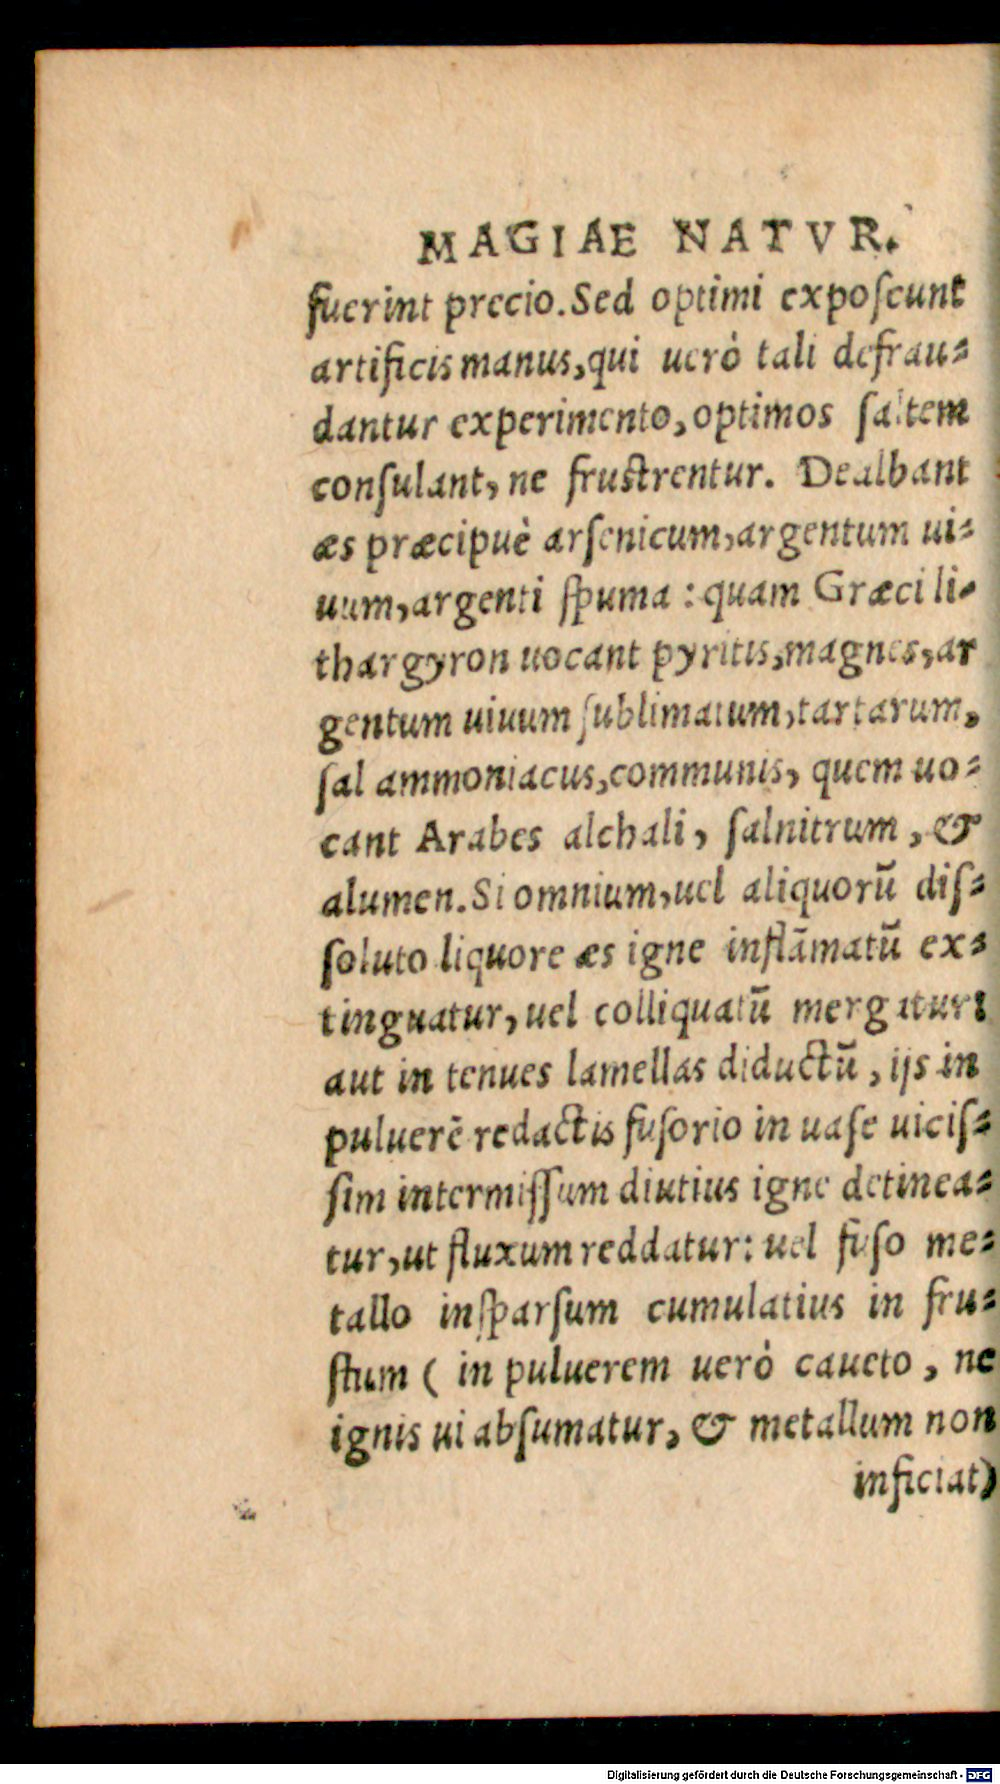 MAGIAE NATVR.
fuerint precio. Sed optimi exposcunt
artificis manus, qui uerò tali defrau-
dantur experimento, optimos saltem
consulant, ne frustrentur. Dealbant
æs præcipuè arsenicum, argentum ui-
uum, argenti spuma : quam Græci li-
thargyron uocant pyritis, magnes, ar
gentum uiuum sublimatum, tartarum,
sal ammoniacus, communis, quem uo-
cant Arabes alchali, salnitrum, &
alumen. Si omnium, uel aliquorū dis-
soluto liquore æs igne inflāmatū ex-
tinguatur, uel colliquatū mergitur:
aut in tenues lamellas diductū, ijs in
puluerē redactis fusorio in uase uicis-
sim intermissum diutius igne detinea-
tur, ut fluxum reddatur: uel fuso me-
tallo insparsum cumulatius in fru-
stum ( in puluerem uerò caueto, ne
ignis ui absumatur, & metallum non
inficiat)
Digitalisierung gefördert durch die Deutsche Forschungsgemeinschaft - DFG